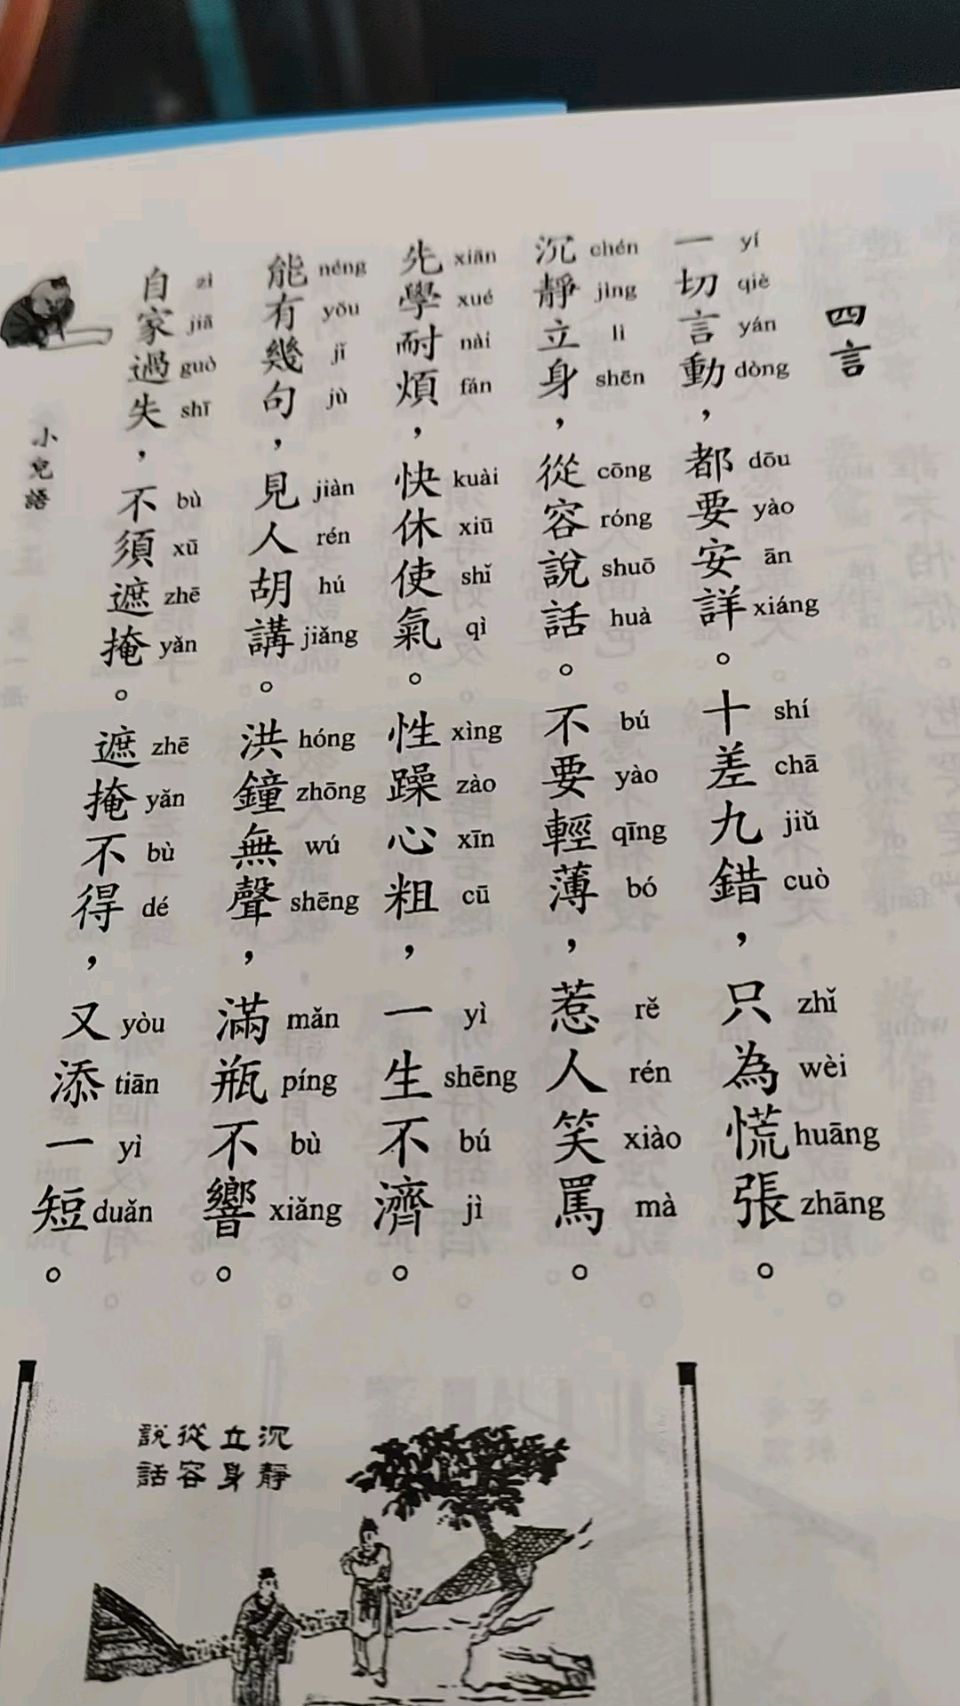 四言
一切言動，都要安詳。十差九錯，只為慌張。
yí qiè yán dòng dōu yào ān xiáng shí chā jiǔ cuò zhǐ wèi huāng zhāng
沉靜立身，從容說話。不要輕薄，惹人笑罵。
chén jìng lì shēn cōng róng shuō huà bú yào qīng bó rě rén xiào mà
先學耐煩，快休使氣。性躁心粗，一生不濟。
xiān xué nài fán kuài xiū shǐ qì xìng zào xīn cū yì shēng bú jì
能有幾句，見人胡講。洪鐘無聲，滿瓶不響。
néng yǒu jǐ jù jiàn rén hú jiǎng hóng zhōng wú shēng mǎn píng bù xiǎng
自家過失，不須遮掩。遮掩不得，又添一短。
zì jiā guò shī bù xū zhē yǎn zhē yǎn bù dé yòu tiān yì duǎn
小兒語
沉靜
立身
從容
說話